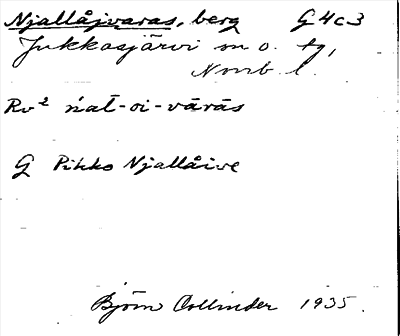 Njallåjvaras, berg G4c3
Jukkasjärvi sn o. tg,
Norrb. l.
Rv² ńat̄-oi-vārās
G Pikko Njallåive
Björn Collinder 1935.